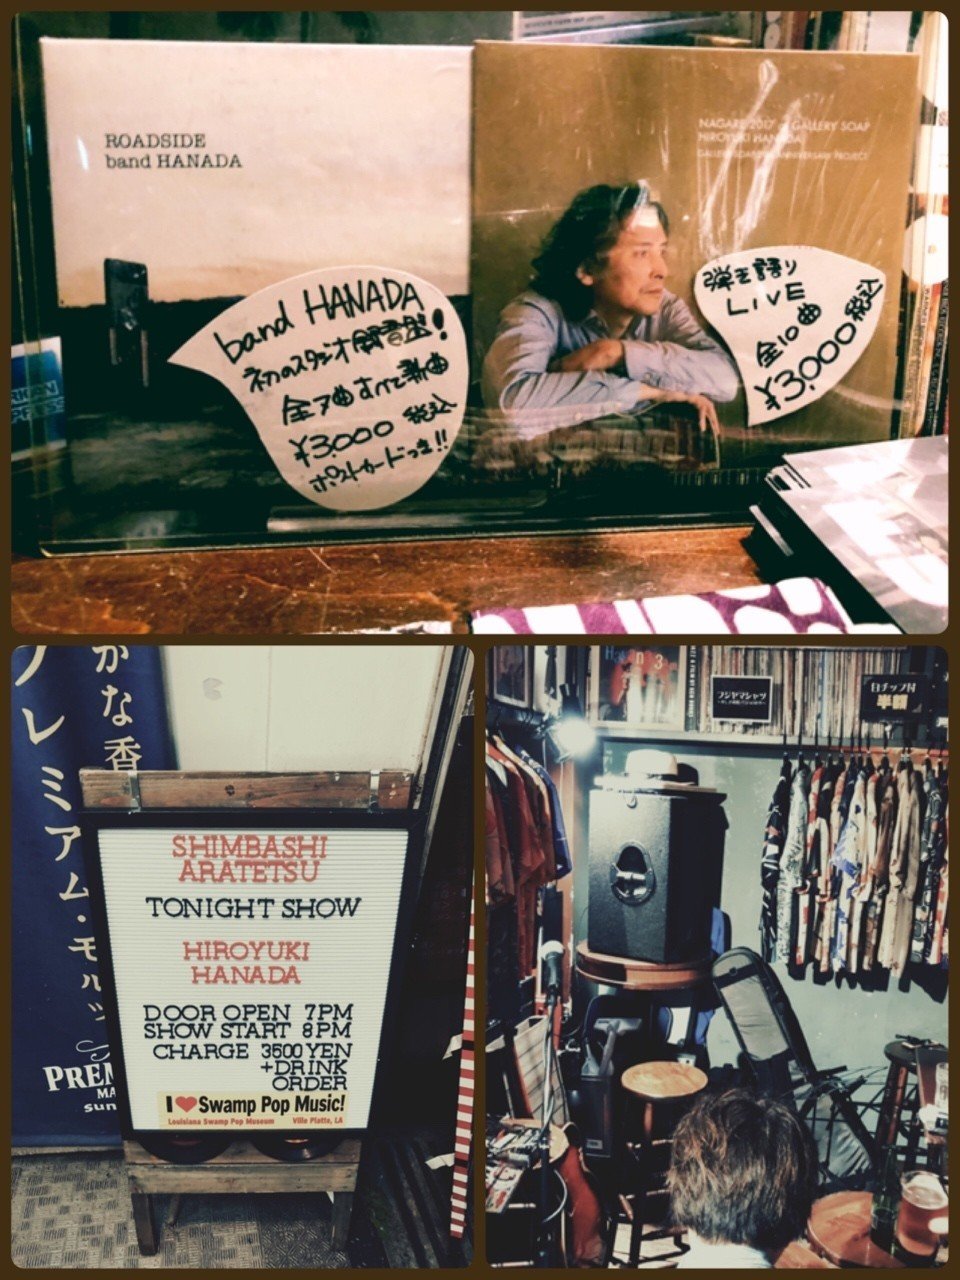 ROADSIDE
band HANADA
NAGARE 2017 at GALLERY SOAP
HIROYUKI HANADA
GALLERY SOAP ANNIVERSARY PROJECT
band HANADA
初のスタジオ録音盤!
全7曲すべて新曲
¥3.000 税込
ポストカードつき!!
弾き語り
LIVE
全10曲
¥3,000税込
かな香
プレミアム・モルツ
PREM
MA
sun
SHIMBASHI
ARATETSU
TONIGHT SHOW
HIROYUKI
HANADA
DOOR OPEN 7PM
SHOW START 8PM
CHARGE 3500 YEN
+DRINK
ORDER
I ❤ Swamp Pop Music!
Louisiana Swamp Pop Museum Ville Platte, LA
Havana 3am
フジヤマシャツ
白チップ付
半額